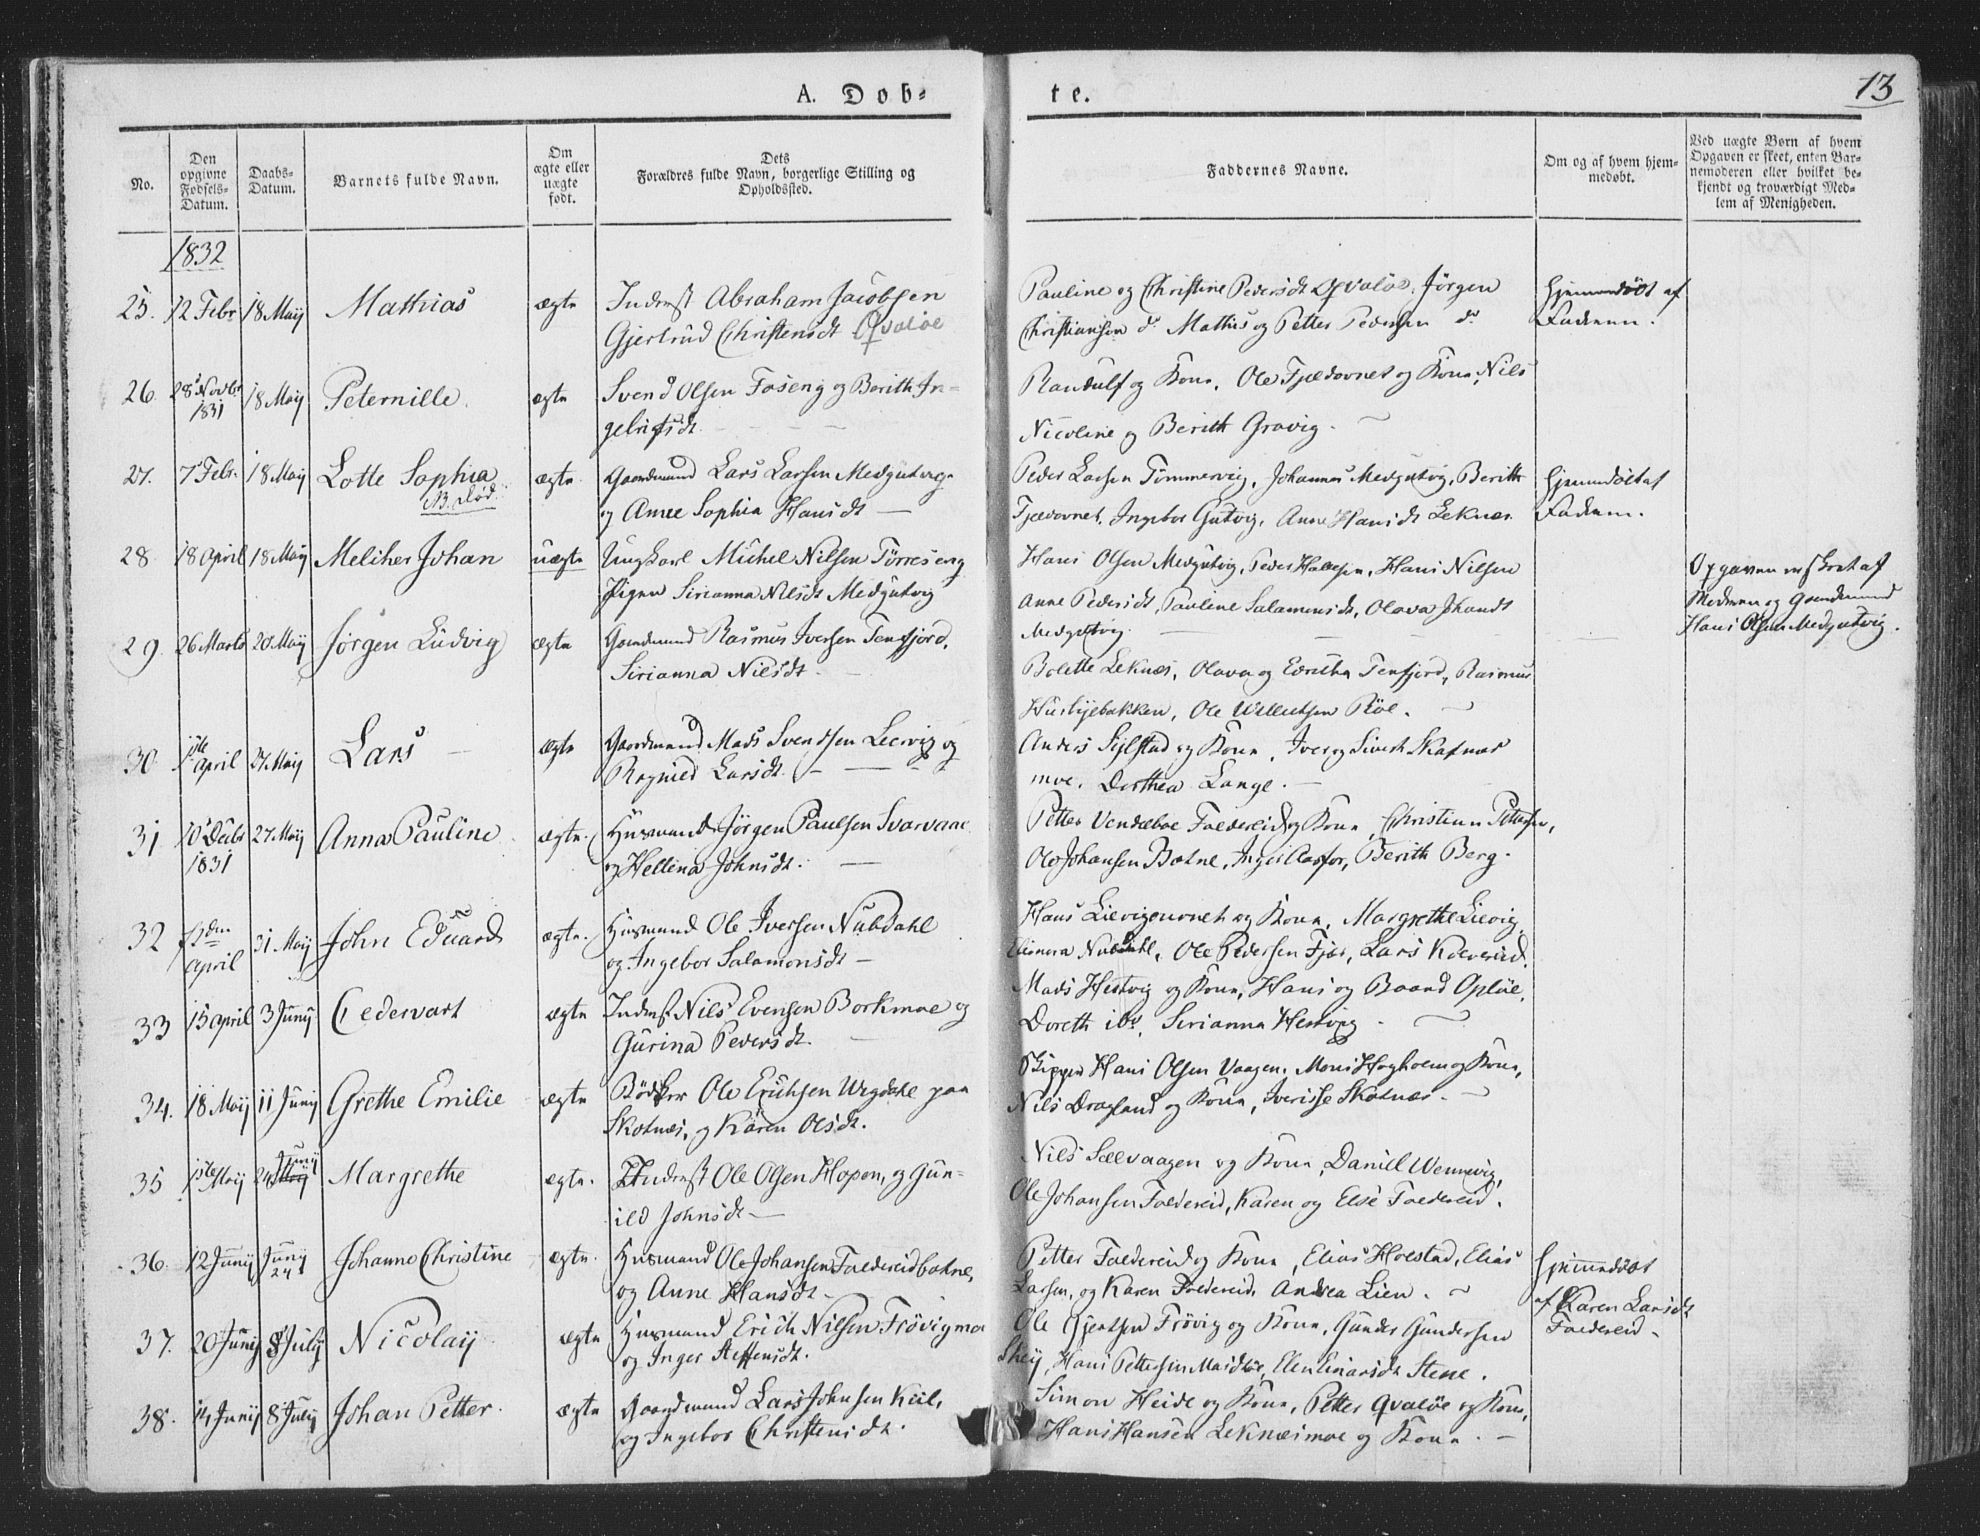 A. Dob-
te.
13
No.
Den opgivne Fødsels-Datum.
Daabs-Datum.
Barnets fulde Navn.
Om ægte eller uægte født.
Dets Forældres fulde Navn, borgerlige Stilling og Opholdssted.
Faddernes Navne.
Om og af hvem hjem-medøbt.
Ved uægte Børn af hvem Opgaven er skeet, enten Bar-nemoderen eller hvilket be-kjendt og troværdigt Med-lem af Menigheden.
1832
25. 12 Febr 18 Maij Mathias ægte Inderst Abraham Jacobsen
Gjertrud Christensdt Qvaløe
Pauline og Christine Pedersdt Qvaløe, Jørgen
Christiansen do Mathis og Petter Pedersen do
Hjemmedøbt af
Faderen.
26. 28 Novbr 1831 18 Maij Peternille. ægte Svend Olsen Foseng og Berith In-
gebrigtsdt.
Randulf og Kone, Ole Fjeldavnet og Kone, Nils
Nicoline og Berith Gravig.
27. 7 Febr. 18 Maij Lotte Sophia ægte Gaardmand Lars Larsen
NB. død.
og Anne Sophia Hansdt
Peder Larsen Tømmervig, Johannes Berith
Ingebor Gutvig, Anne Hansdt Leknæs
Hjemmedøbt af
Faderen.
28. 18 April 18 Maij Melcher Johan uægte Ungkarl Michel Nilsen Tørreseng
Pigen Sirianna Nilsdt Medgutvig
Hans Olsen Medgutvig, Peder Hansen, Hans Nilsen
Anne Pedersdt, Pauline Salamonsdt, Olava
Medgutvig
Opgaven er skeet af
Moderen og Gaardmand
Hans Olsen Medgutvig.
29. 26 Marts 20 Maij Jørgen Ludvig ægte Gaardmand Rasmus Iversen Tenfjord,
Sirianna Nilsdt.
Bolette Leknæs, Olava og Tenfjord, Rasmus
Ole Røe.
30. 1ste April 27 Maij Lars ægte Gaardmand Mads Svendsen Lervig og
Ragnild Larsdt.
Anders Sylstad og Kone, Iver og Sivert Skotnes
moe. Dorthea Lange.
31 10 Decbr 1831 27 Maij Anna Pauline ægte. Husmand Jørgen Paulsen
og Hellena Johnsdt.
Petter Foldereid og Kone, Christian Petersen,
Ole Johansen Botne, Inger Berith Berg.
32 13den April 31 Maij John Eduard ægte. Husmand Ole Iversen Nubdahl
og Ingebor Salamonsdt
Hans og Kone, Margrethe Lievig,
Nubdahl, Ole Pedersen Lars
33 15 April 3 Junij Cedervart ægte Inderst Nils Evensen Borkmoe og
Gurina Pedersdt.
Mads Hestvig og Kone, Hans og Baard Opløe,
Doreth ibd, Sirianna Hestvig.
34. 18 Maij 11 Junij Grethe Emilie ægte Bødker Ole Erichsen paa
Skotnæs, og Karen Olsdt.
Skipper Hans Olsen Vaagen, Mons og Kone,
Nils Dragland og Kone, Skotnæs.
35 1ste Maij 24 Junij Margrethe ægte. Inderst Ole Olsen Hopen, og Gun-
ild Johnsdt
Nils Sælvaagen og Kone, Daniel Wennevig,
Ole Johansen Foldereid, Karen og Else Foldereid.
36. 12 Junij Junij 24 Johanna Christine ægte. Husmand Ole Johansen Foldereidbotne,
og Anne Hansdt
Petter Foldereid og Kone, Elias Elias
Larsen, og Karen Foldereid, Andrea Lien.
Hjemmedøbt
af Karen Larsdt
Foldereid
37. 20 Junij 8 July Nicolay ægte Husmand Erich Nilsen Frøvigmoe
og Inger Steffensdt.
Ole Frøvig og Kone, Gunder Gundersen
Hans Pettersen Elen Einarsdt Stene.
38. 14 Junij 8 July Johan Petter. ægte Gaardmand Lars Johnsen Keil,
og Ingebor Christensdt.
Simon Heide og Kone, Petter Qvaløe og Kone,
Hans Hansen Leknæsmoe og Kone.